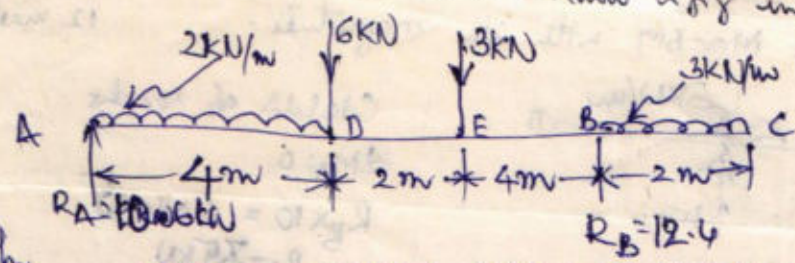 2KN/m 6KN 3KN 3KN/m
A D E B C
4m 2m 4m 2m
R_A= 6KN
R_B=12.4